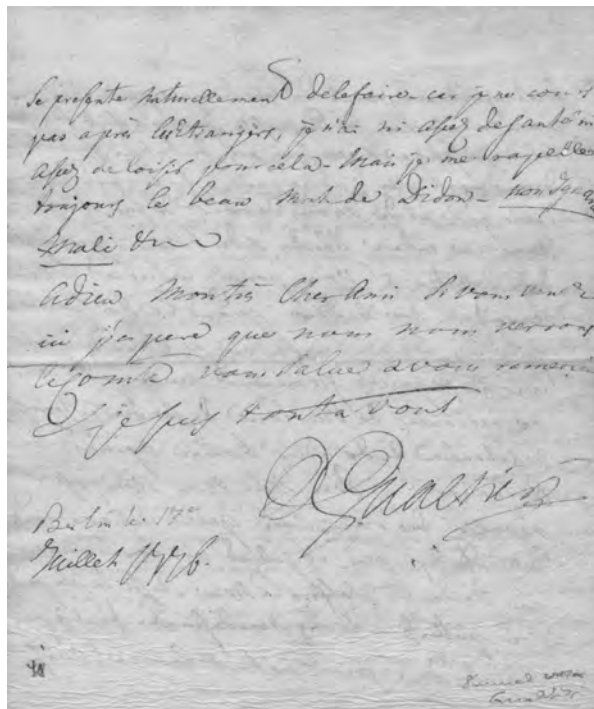 se presente naturellement de le faire car je ne cours
pas après les Etrangers, je n'ai ni assez de santé ni
assez de loisir pour cela - Mais je me rappelle
toujours le beau mot de Didon - non Ignara
mali &
Adieu Mon très Cher Ami Si vous venez
ici j'espere que nous nous verrons
le Comte vous salue et vous remercie
je suis tout a vous
Gualtieri
Berlin le 17
Juillet